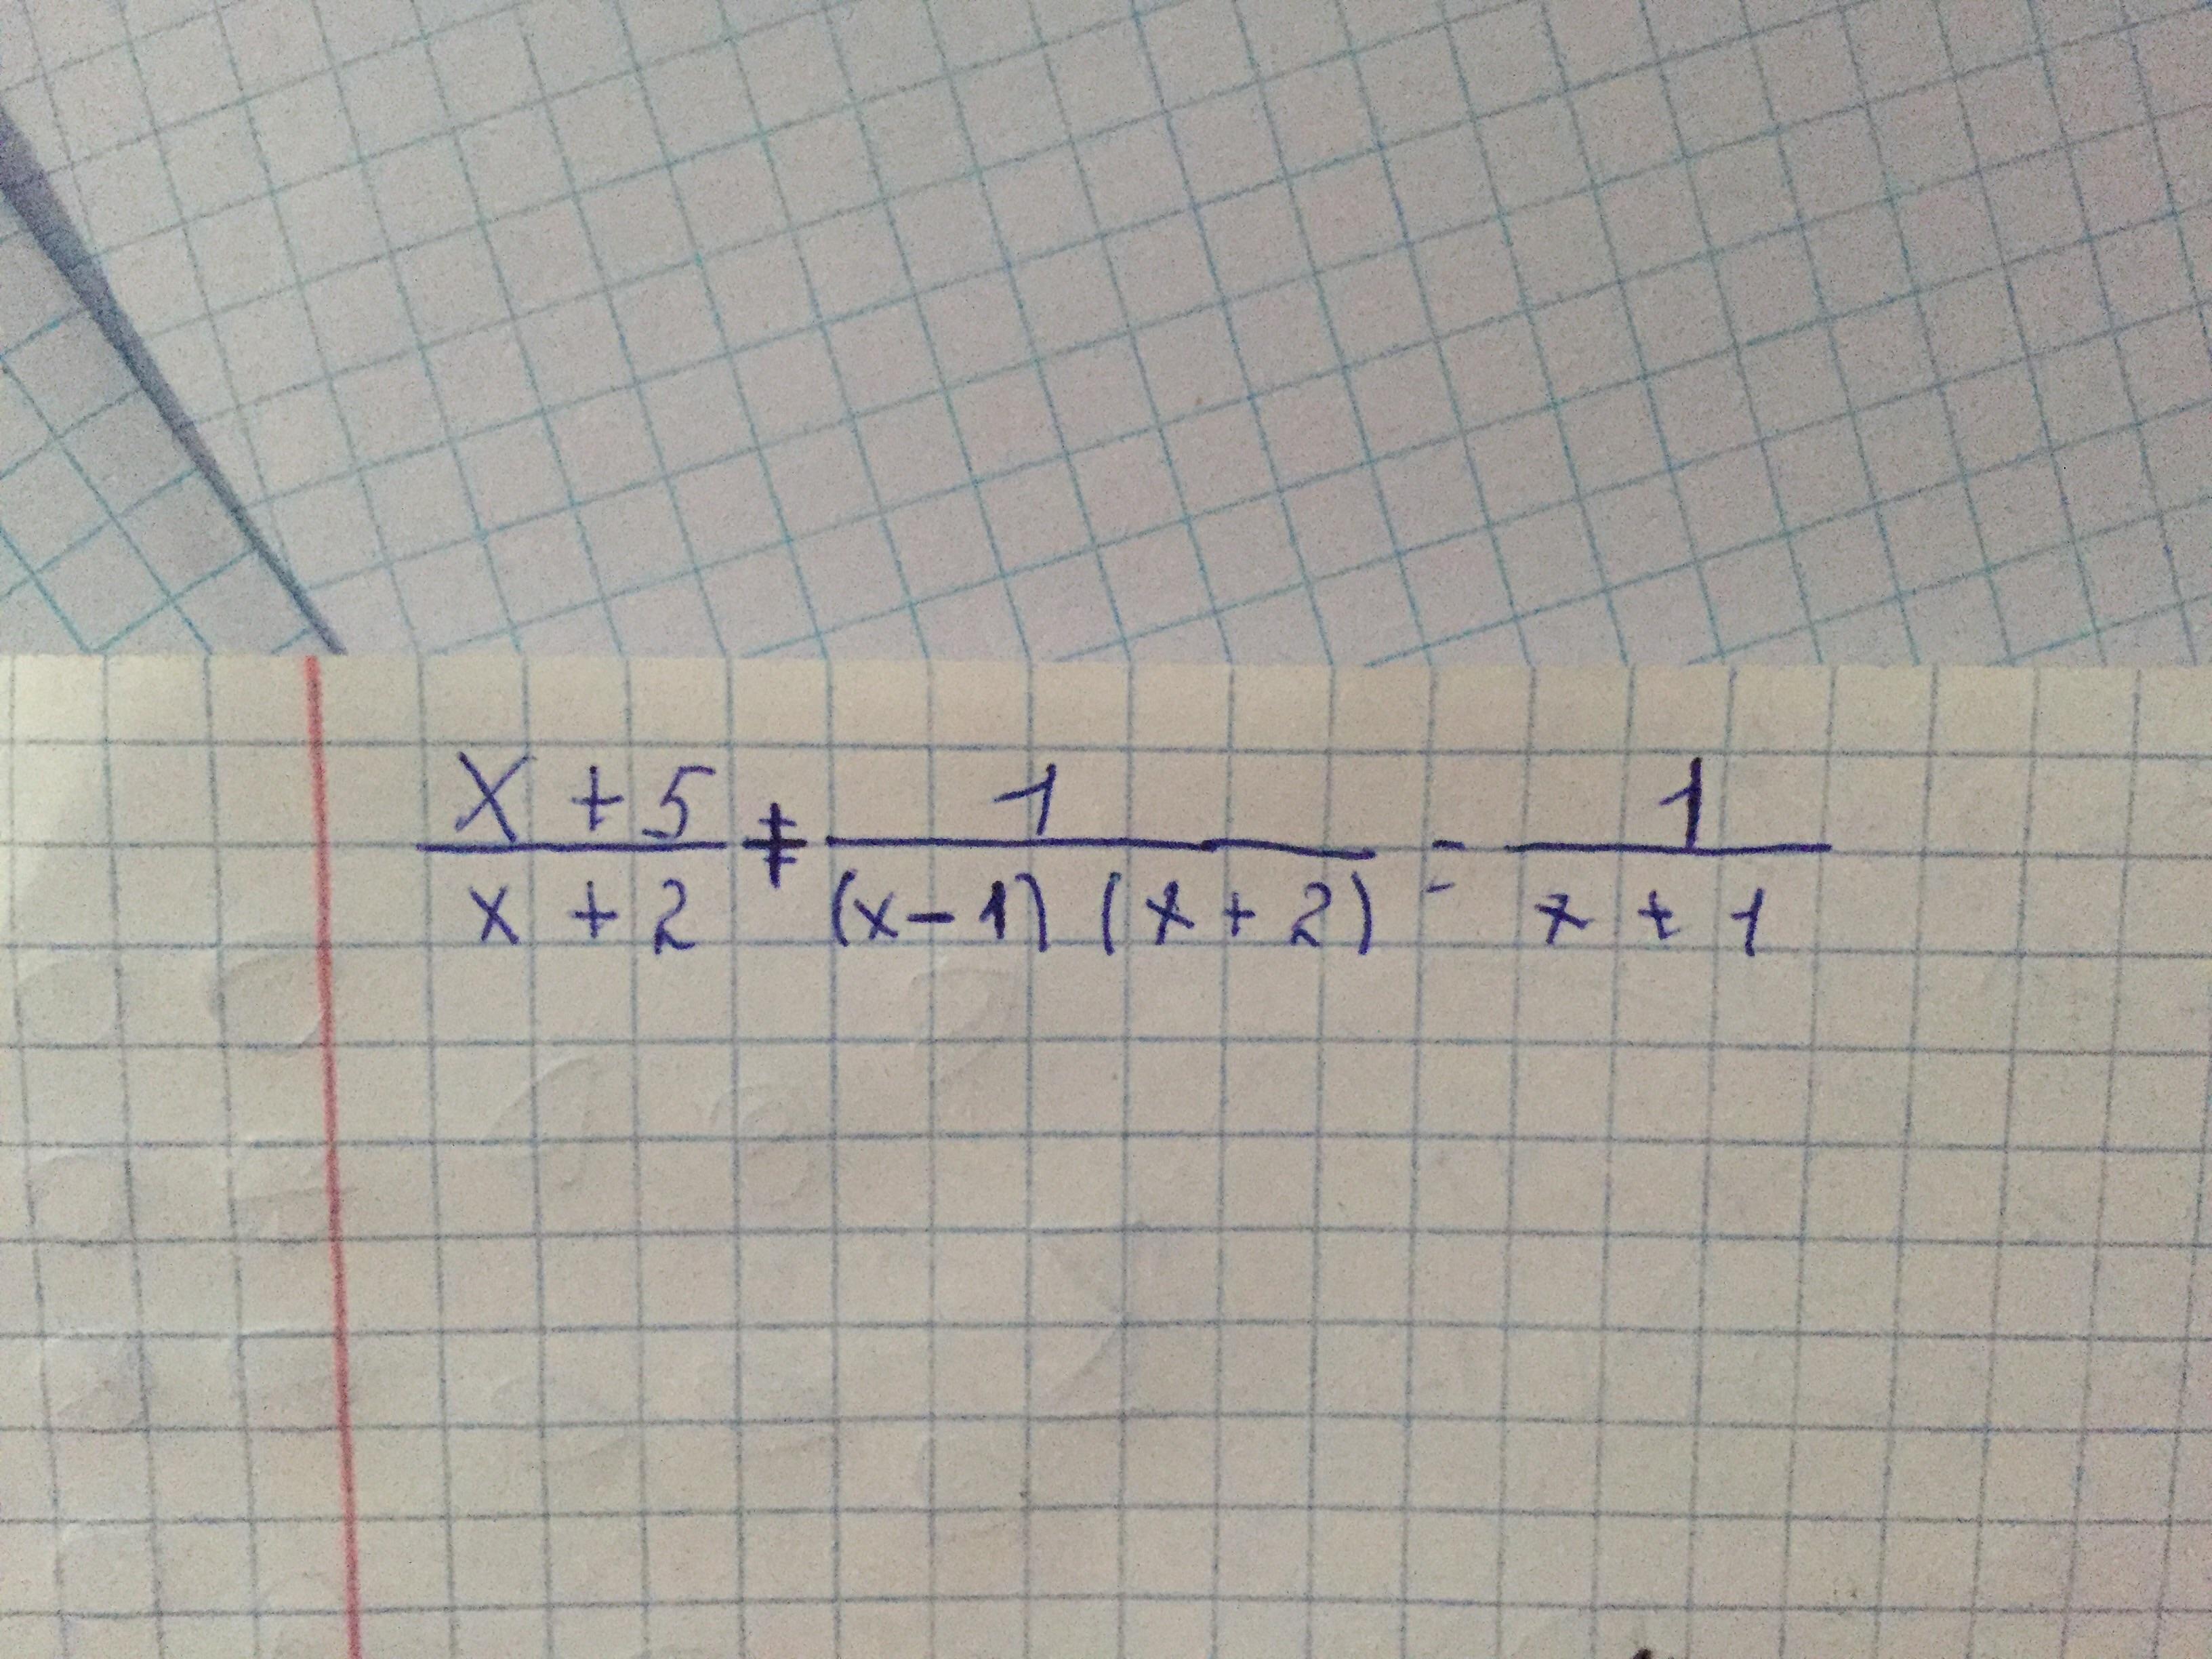 \frac{x+5}{x+2} + \frac{1}{(x-1)(x+2)} = \frac{1}{x+1}